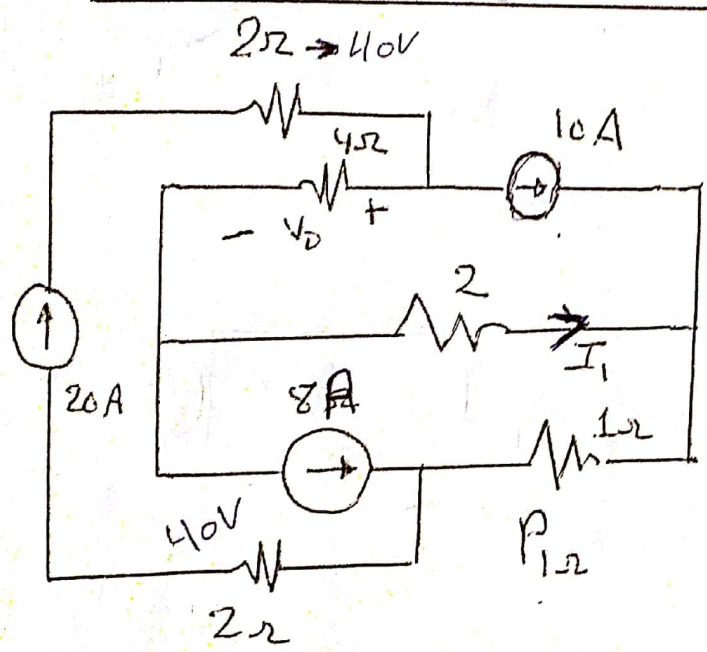 2Ω → 40V
4Ω
10A
- V₀ +
2
I₁
20A
8A
1Ω
40V
P₁Ω
2Ω